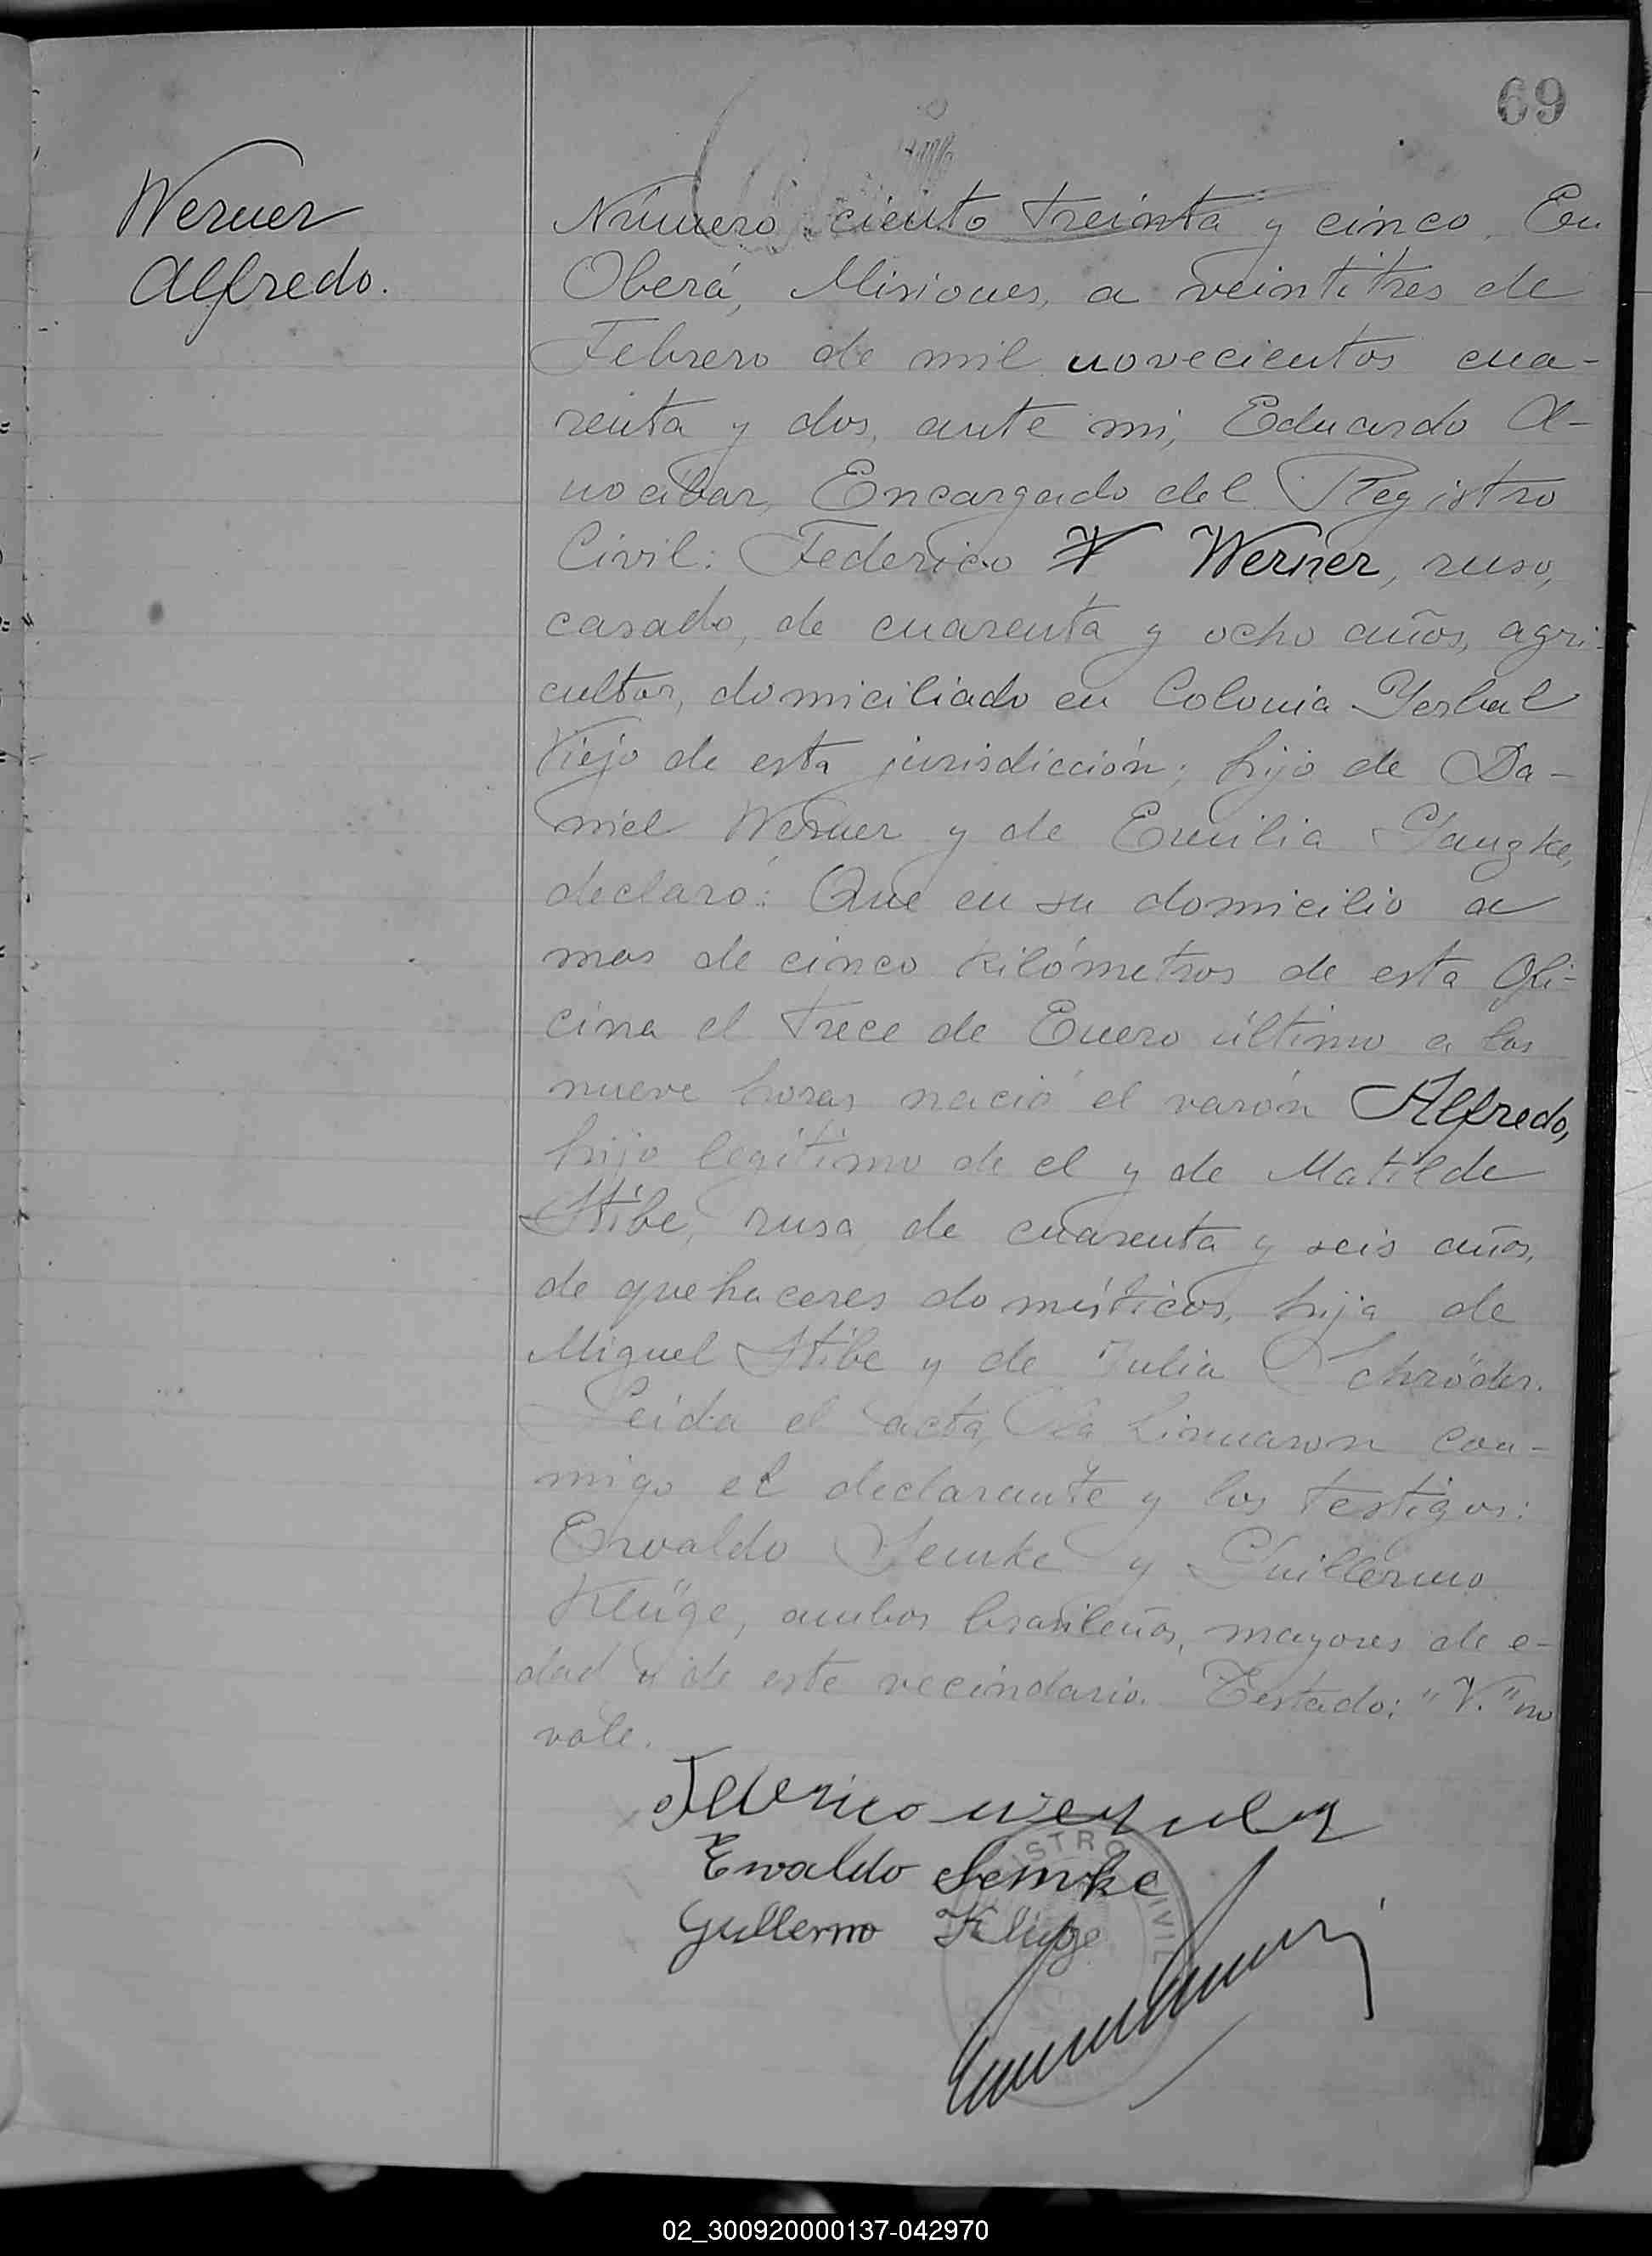 69
Werner
Alfredo.
Número ciento treinta y cinco. En
Oberá, Misiones, a veintitres de
Febrero de mil novecientos cua-
renta y dos, ante mi, Eduardo A-
nocibar, Encargado del Registro
Civil: Federico V Werner, ruso,
casado, de cuarenta y ocho años, agri-
cultor, domiciliado en Colonia Yerbal
Viejo de esta jurisdicción; hijo de Da-
niel Werner y de Emilia
declaró: Que en su domicilio a
mas de cinco kilómetros de esta Ofi-
cina el trece de Enero último a las
nueve horas nació el varón Alfredo,
hijo legítimo de el y de Matilde
Stibe, rusa, de cuarenta y seis años,
de quehaceres domésticos, hija de
Miguel Stibe y de Julia Schröder.
Leida el acta, la firmaron con-
migo el declarante y los testigos:
Ervaldo Semke y Guillermo
Klüge, ambos brasileños, mayores de e-
dad y de este vecindario. Testado: "V." no
vale.
Federico Werner
Ervaldo Semke
Gullermo Klüge
REGISTRO CIVIL
02_300920000137-042970